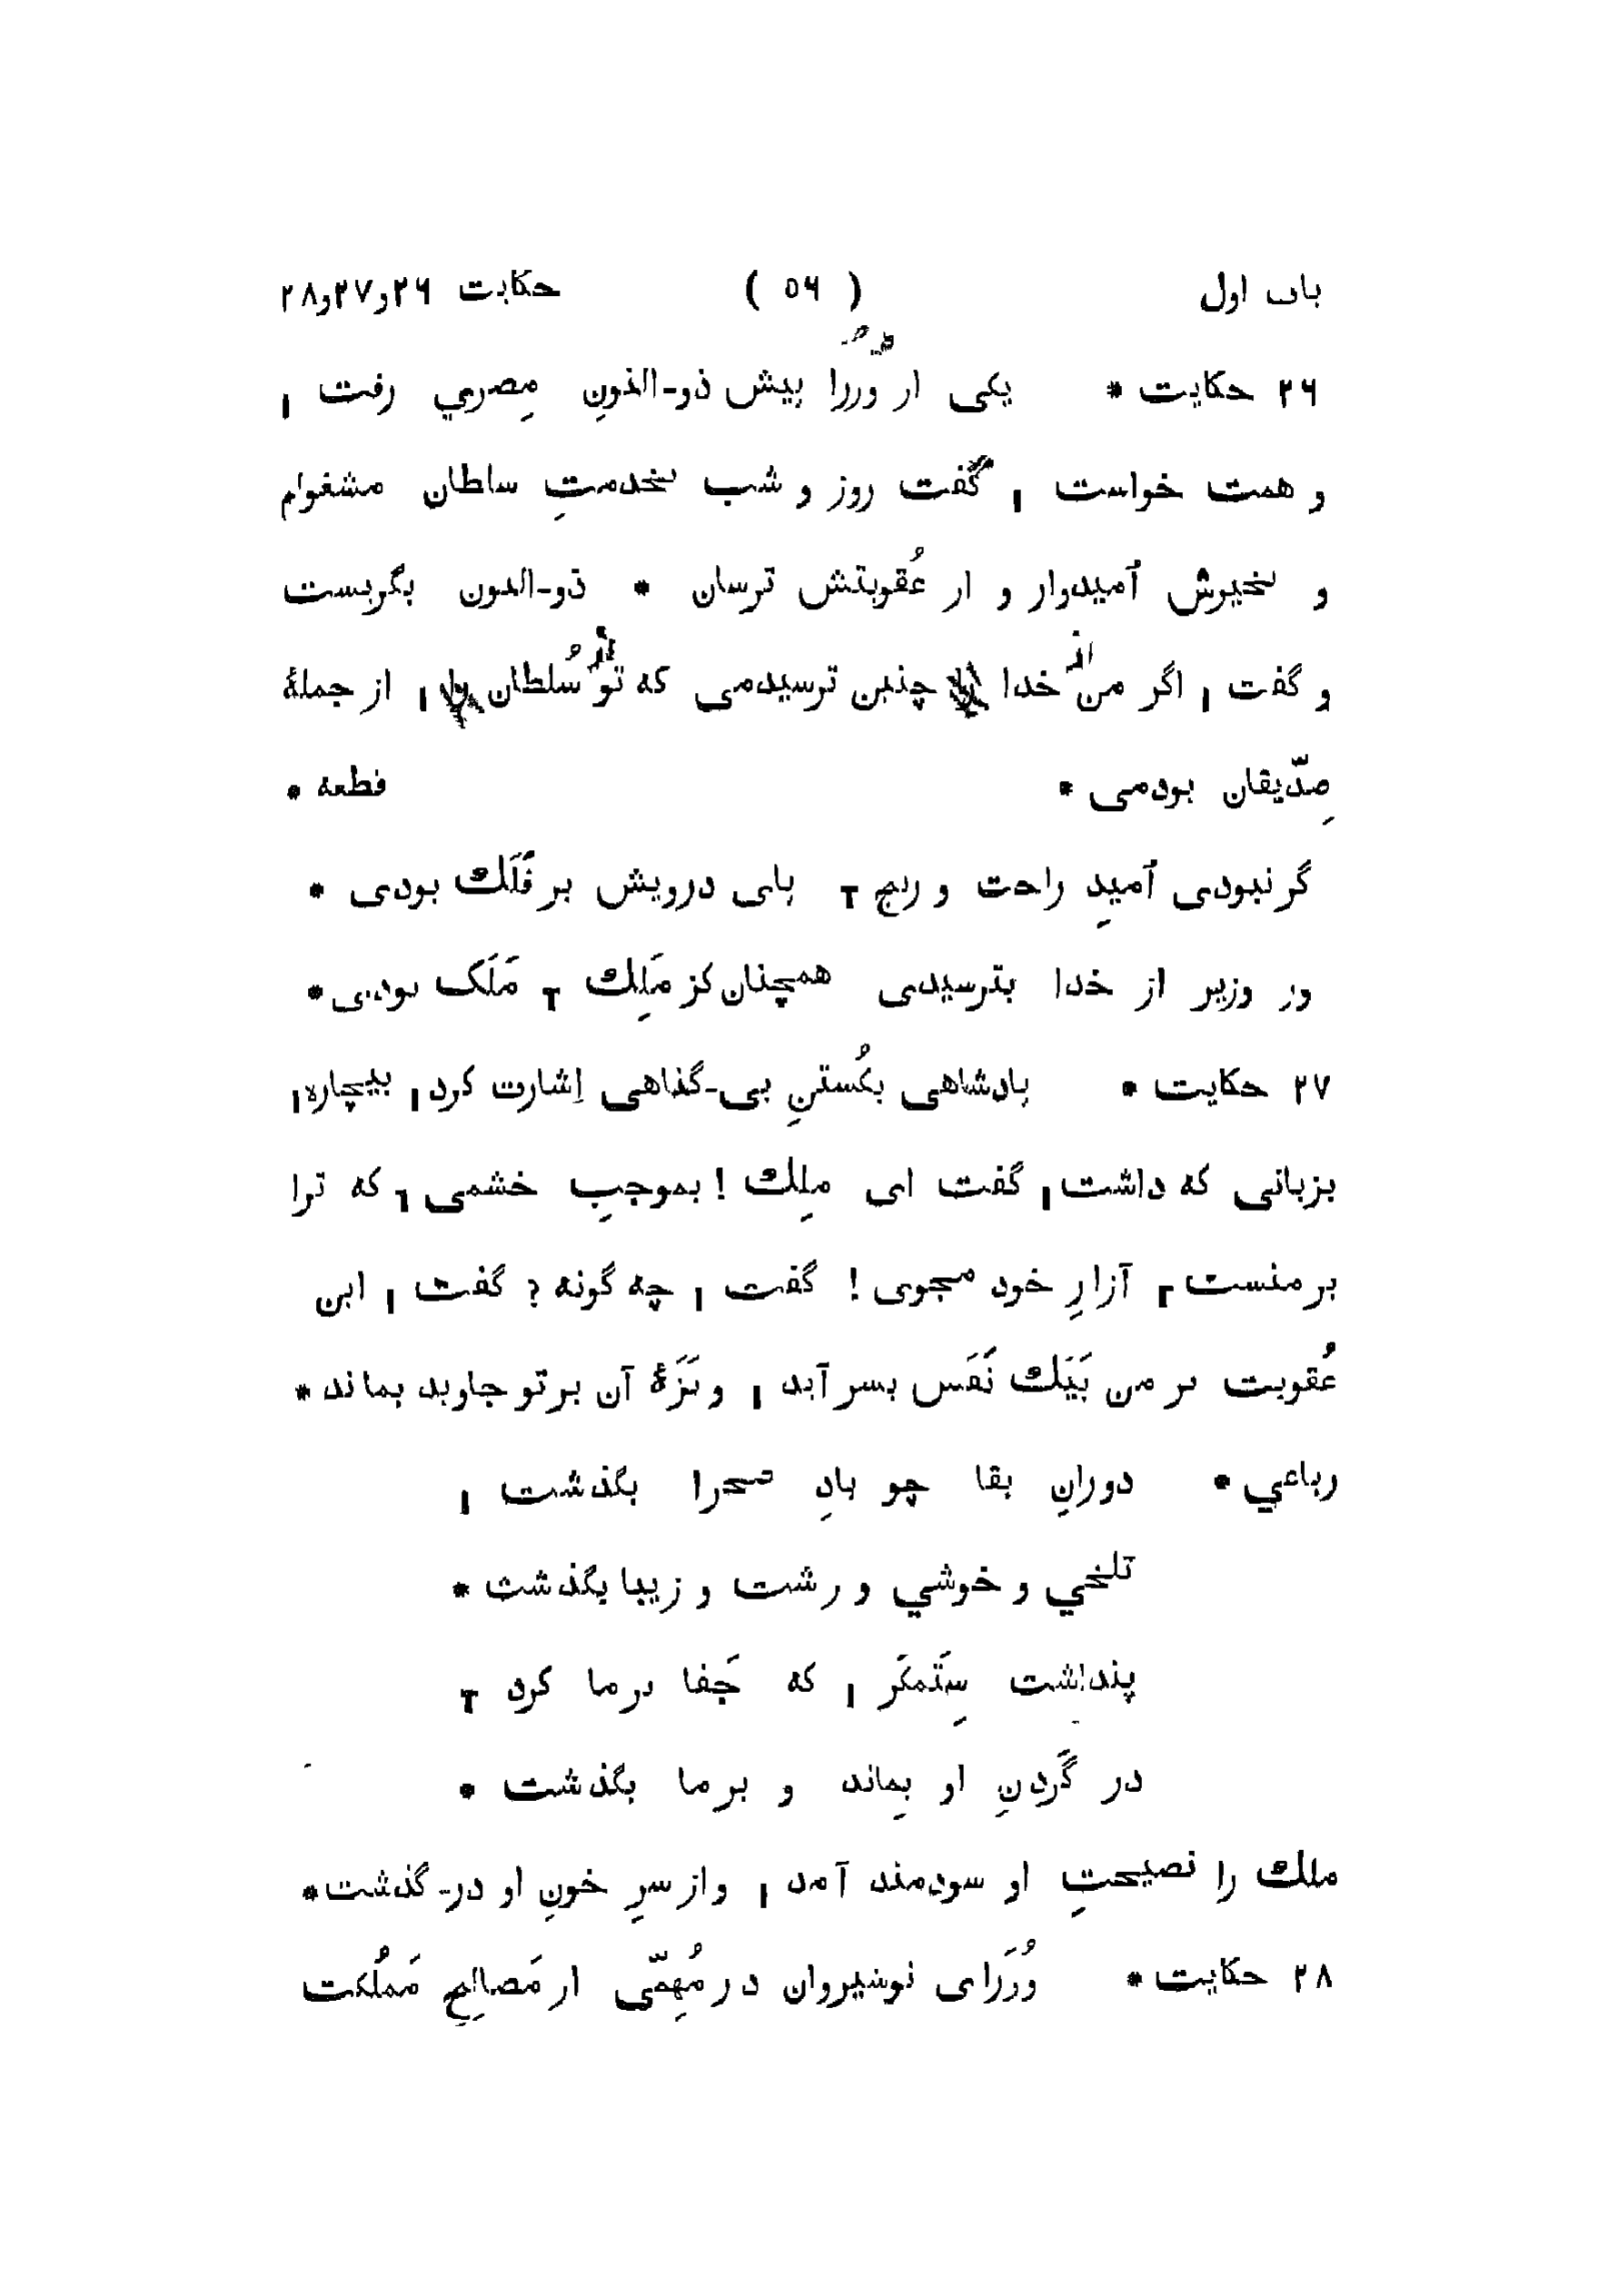 باب اول ( ٥٦ ) حکایت ٢٦و٢٧و٢٨
٢٦ حکایت * یکی از وزرا پیش ذو-النونِ مِصري رفت ۱
و همت خواست ۱ گفت روز و شب بخدمتِ سلطان مشغولم
و بخیرش اُمیدوار و از عُقوبتش ترسان * ذو-النون بگریست
و گفت ۱ اگر من از خدا چنین ترسیدمی که تو از سُلطان ۱ از جملهٔ
صِدّیقان بودمی * قطعه *
گر نبودی اُمیدِ راحت و رنج ٢ پای درویش بر فَلَك بودی *
ور وزیر از خدا بترسیدی همچنان کز مَلِك ٢ مَلَک بودی *
٢٧ حکایت * پادشاهی بکُشتنِ بی-گناهی اِشارت کرد ۱ بیچاره ۱
بزبانی که داشت ۱ گفت ای ملِك ! بموجبِ خشمی ٦ که ترا
بر منست ٢ آزارِ خود مجوی ! گفت ۱ چه گونه ? گفت ۱ این
عُقوبت بر من بَیَك نَفَس بسر آید ۱ و بَزَهٔ آن بر تو جاوید بماند *
رباعي * دورانِ بقا چو بادِ صحرا بگذشت ۱
تلخي و خوشي و زشت و زیبا بگذشت *
پنداشت سِتَمگَر ۱ که جَفا بر ما کرد ٢
در گَردنِ او بِماند و بر ما بگذشت *
ملك را نصیحتِ او سودمند آمد ۱ و از سرِ خونِ او در-گذشت *
٢٨ حکایت * وُزَرای نوشیروان در مُهِمّی از مَصالِحِ مَملُکت